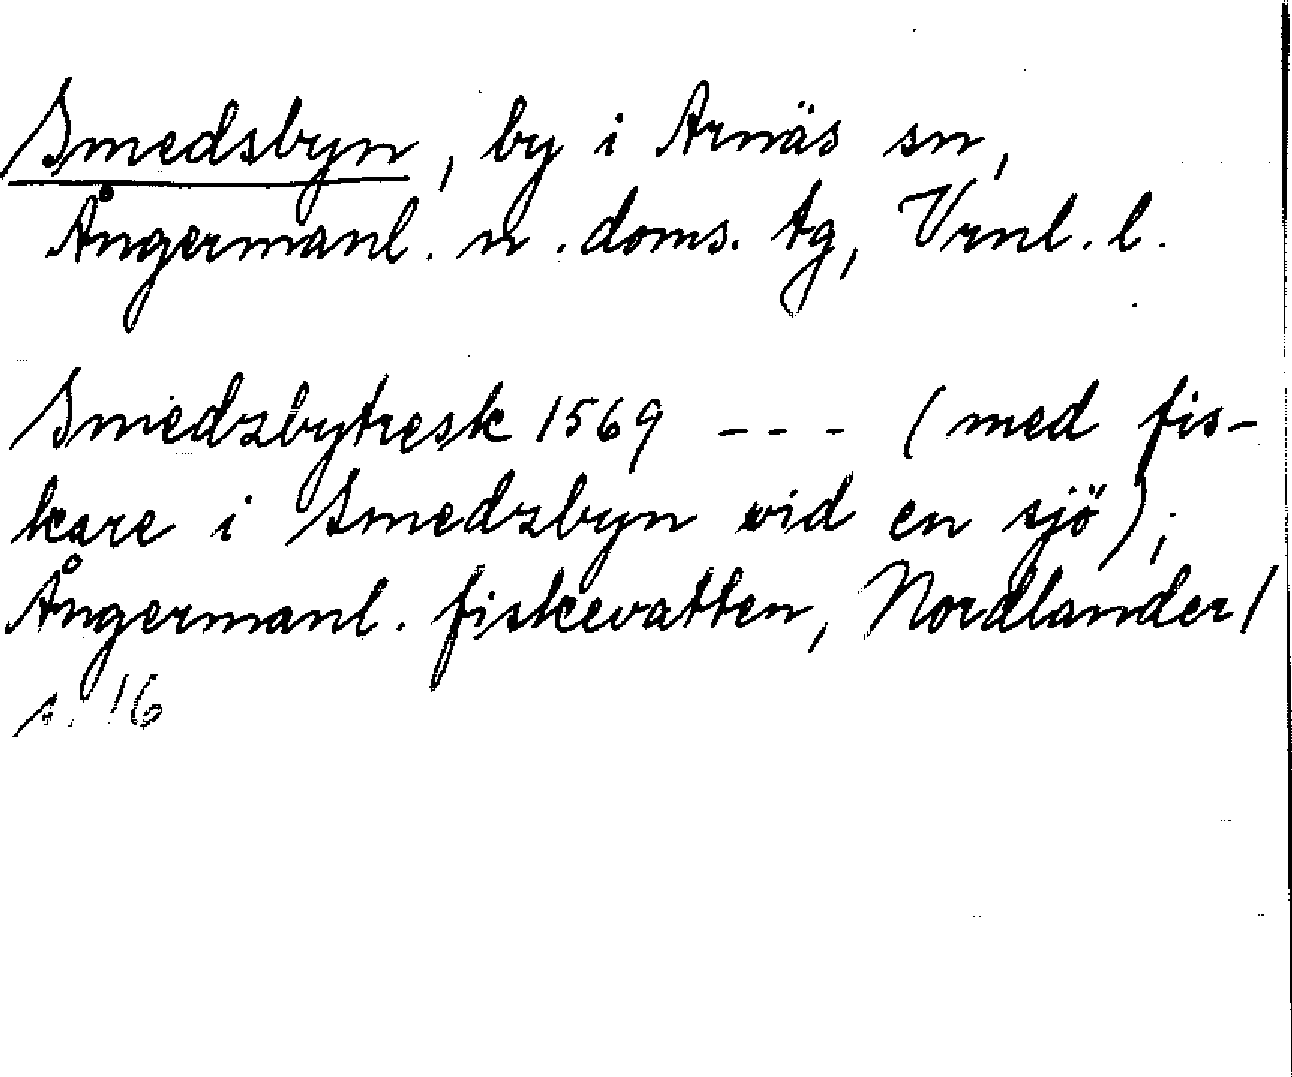 Smedsbyn, by i Arnäs sn,
Ångermanl. n. doms. tg, Vrnl. l.
Smedzbytresk 1569 --- (med fis-
kare i Smedzbyn vid en sjö);
Ångermanl. fiskevatten, Nordlander /
s. 16